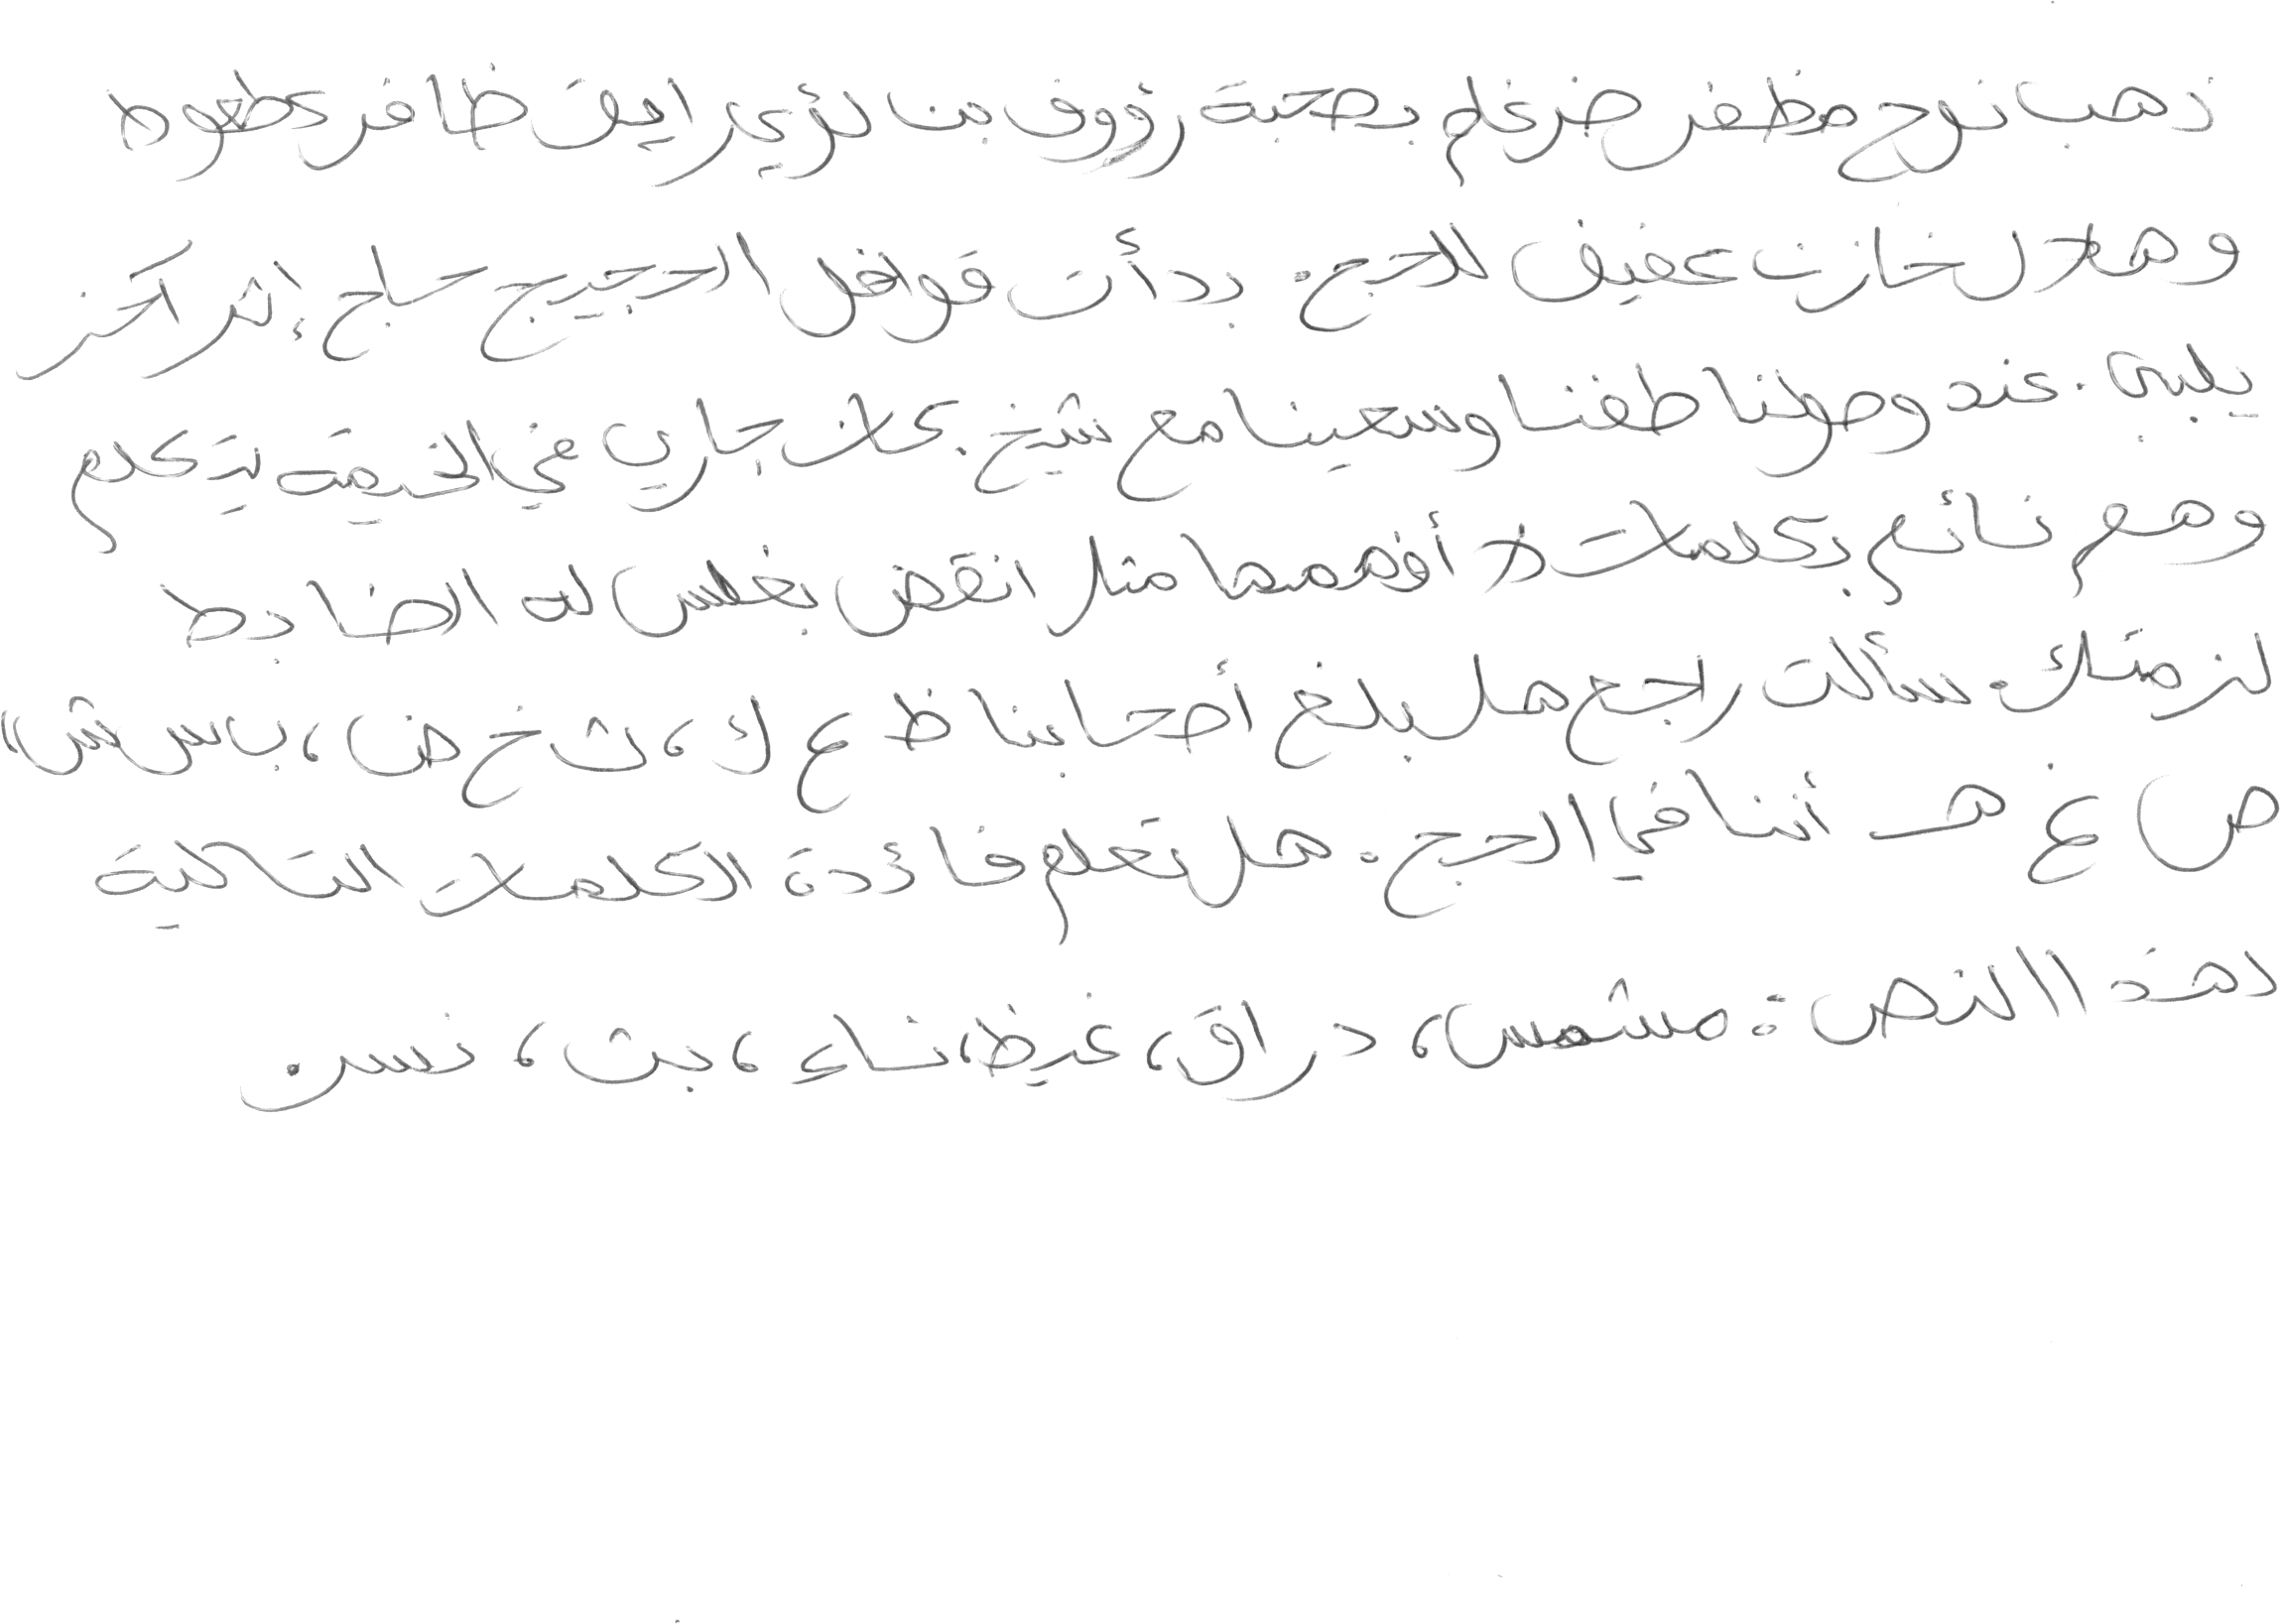 ذهب نوح مظفر ضرغام بصحبة رؤوف بن لؤي رايق ظافر عطعوط
وهلال خازن عفيف للحج. بدأت قوافل الحجيج حاج إثر آخر
يلبي. عند وصولنا طفنا وسعينا مع شيخ. كان جاري في الخيمة يتكلم
وهو نائم بكلمات لا أفهمها مثل انقض بغطس له الضابط
لزمتك. سألت راجح هل بلغ أصحابنا ظ ع ك، ث خ ض، ب س ش،
ص غ هـ أننا في الحج. هل تعلم فائدة الكلمات التالية
لهذا النص: مشمس، دراق، غيظ، ناء، بث، نسر.